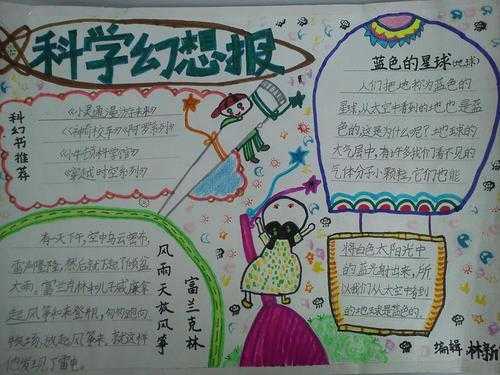 科学幻想报
科幻书推荐
《小灵通漫游未来》
《小牛顿科学馆》
《穿越时空系列》
蓝色的星球(地球)
人们把地球称为蓝色的
星球,从太空中看到的地球也是蓝
色的,这是为什么呢?地球的大
气层中,有许多我们看不见的
气体分子小颗粒,它们也能
将白色太阳光中
的蓝光射出来,所
以我们从太空中看到
的地球是蓝色的。
风雨天放风筝
富兰克林
有一天下午,空中乌云密布,
雷声隆隆,然后就下起了倾盆
大雨。富兰克林和儿子威廉拿
起风筝和莱登瓶,匆匆跑向
牧场,放起风筝来,就这样
他发现了雷电。
编辑 林新